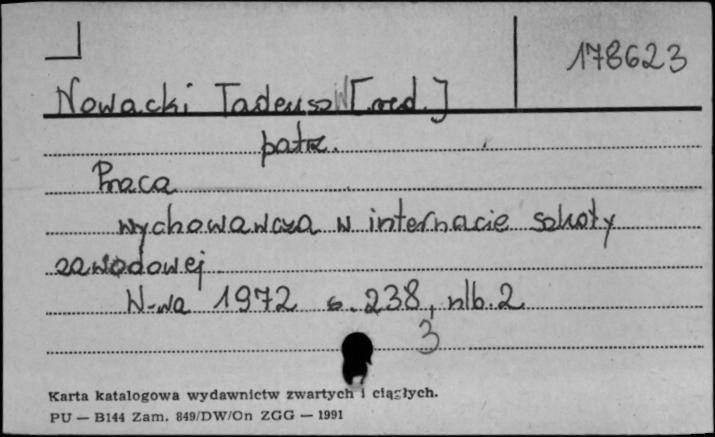 178623
Nowacki Tadeusz W [red.]
patrz.
Praca
wychowawcza w internacie szkoły
zawodowej
W-wa 1972 s. 238, nlb. 2
3
Karta katalogowa wydawnictw zwartych i ciągłych.
PU — B144 Zam. 849/DW/On ZGG — 1991